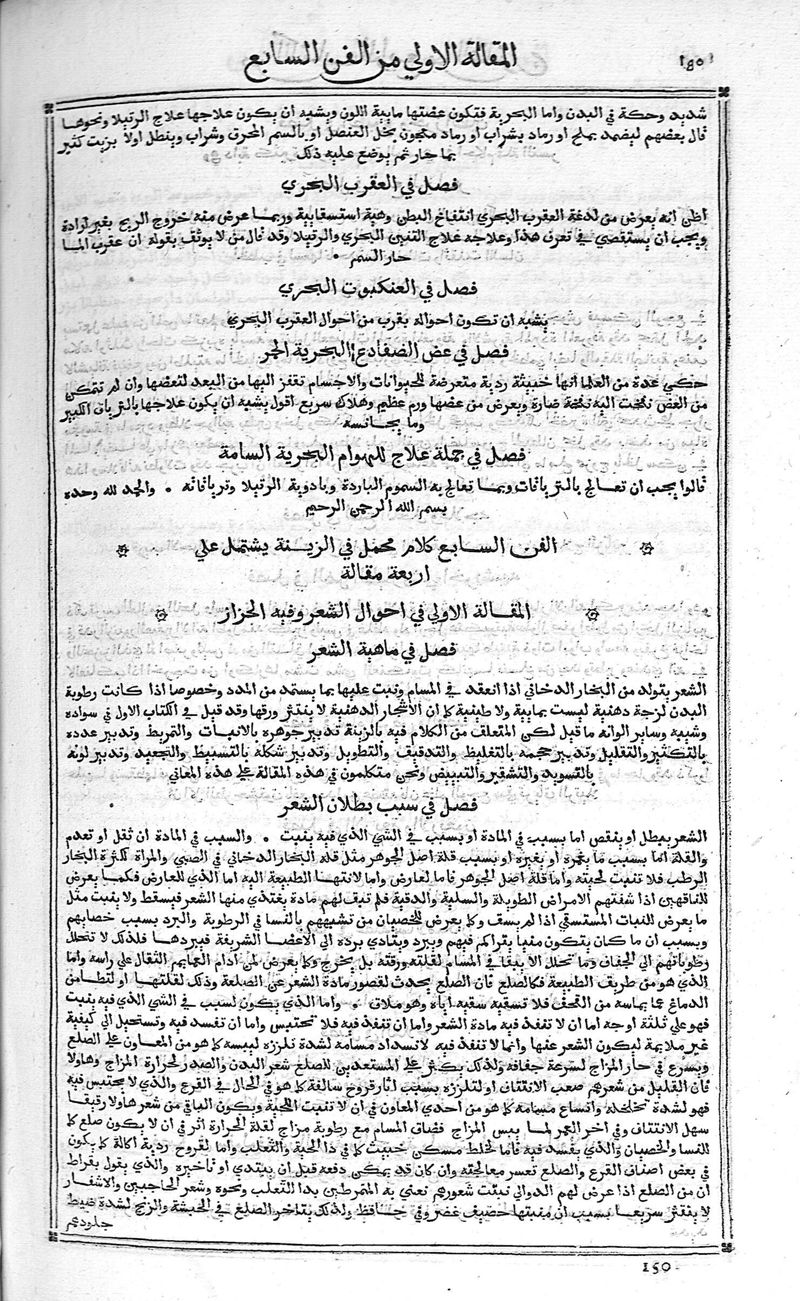 المقالة الاولي من الفن السابع
١٥٠
شديد وحكة في البدن واما البحرية فتكون عضتها مايية اللون ويشبه ان يكون علاجها علاج الرتيلا ونحوها
قال بعضهم ليضمد بملح او رماد بشراب او رماد معجون بخل العنصل او بالسم المحرق وشراب وينطل اولا بزيت كثير
بما حار ثم يوضع عليه ذلك
فصل في العقرب البحري
اظن انه يعرض من لدغة العقرب البحري انتفاخ البطن وهية استسقايية وربما عرض منه خروج الريح بغير ارادة
ويجب ان يستقصي في تعرف هذا وعلاجه علاج التنين البحري والرتيلا وقد قال من لا يوثق بقوله ان عقرب الما
حار السم
فصل في العنكبوت البحري
يشبه ان تكون احواله بقرب من احوال العقرب البحري
فصل في عض الضفادع البحرية الحمر
حكي عدة من العلما انها خبيثة ردية متعرضة للحيوانات والاجسام تقفز اليها من البعد لتعضها وان لم تتمكن
من العض نفخت اليه نفخة ضارة ويعرض من عضها ورم عظيم وهلاك سريع اقول يشبه ان يكون علاجها بالترياق الكبير
وما يجانسه
فصل في جملة علاج للهوام البحرية السامة
قالوا يجب ان تعالج بالترياقات وبما تعالج به السموم الباردة وبادوية الرتيلا وترياقاته . والحمد لله وحده
بسم الله الرحمن الرحيم
الفن السابع كلام مجمل في الزينة يشتمل علي
اربعة مقالة
المقالة الاولي في احوال الشعر وفيه الحزاز
فصل في ماهية الشعر
الشعر يتولد من البخار الدخاني اذا انعقد في المسام وتنبت عليها بما يستمد من المدد وخصوصا اذا كانت رطوبة
البدن لزجة دهنية ليست بمايية ولا طينية كما ان الاشجار الدهنية لا ينتثر ورقها وقد قيل في الكتاب الاول في سواده
وشيبه وساير الوانه ما قيل لكن المتعلف من الكلام فيه بالزينة تدبير جوهره بالانبات والتمريط وتدبير عدده
بالتكثير والتقليل وتدبير حجمه بالتغليظ والتدقيف والتطويل وتدبير شكله بالتسبيط والتجعيد وتدبير لونه
بالتسويد والتشقير والتبييض ونحن متكلمون في هذه المقالة علي هذه المعاني
فصل في سبب بطلان الشعر
الشعر يبطل او ينقص اما بسبب في المادة او بسبب في الشي الذي فيه ينبت . والسبب في المادة ان تقل او تعدم
والقلة اما بسبب ما يغمره او بغيره او بسبب قلة اصل الجوهر مثل قلة البخار الدخاني في الصبي والمراة لكثرة البخار
الرطب فلا تنبت لحيته واما قلة اصل الجوهر فاما لعارض واما لانتها الطبيعة اليه اما الذي للعارض فكما يعرض
للناقهين اذا شفتهم الامراض الطويلة والسلية والدقية فلم تبف لهم مادة يغتذي منها الشعر فيسقط ولا ينبت مثل
ما يعرض للنبات المستسقي اذا لم يسف وكما يعرض للخصيان من تشبههم بالنسا في الرطوبة والبرد بسبب خصايهم
وبسبب ان ما كان يتكون منيا يتراكم فيهم ويبرد ويتادي برده الي الاعضا الشريفة فيبردها فلذلك لا تتحلل
رطوباتهم الي الجفاف وما تحلل الا يبقا في المسام لقلته ورقته بل يخرج وكما يعرض لمن ادام العمايم الثقال علي راسه واما
الذي هو من طريف الطبيعة فكالصلع فان الصلع يحدث لقصور مادة الشعر عن الصلعة وذلك لقلتها او لتطامن
الدماغ عما يماسه من القحف فلا تسقيه سقيه اياه وهو ملاق . واما الذي يكون لسبب في الشي الذي فيه ينبت
فهو علي ثلثة اوجه اما ان لا تنفذ فيه مادة الشعر واما ان تنفذ فيه فلا تحتبس واما ان تفسد فيه وتستحيل الي كيفية
غير ملايمة ليكون الشعر عنها وانما لا تنفذ فيه لانسداد مسامه لشدة تلززه ليبسه كما هو من المعاون علي الصلع
ويسرع في حار المزاج لسرعة جفافه ولذلك يكثر علي المستعدين للصلع شعر البدن والصدر لحرارة المزاج وهاولا
فان القليل من شعرهم صعب الانتتاف او لتلززه بسبب اثار قروح سالفة كما هو في الحال في القرع والذي لا يحتبس فيه
فهو لشدة تخلخله واتساع مسامه كما هو من احدي المعاون في ان لا تنبت اللحية ويكون الباقي من شعر هاولا رقيقا
سهل الانتتاف وفي اخر العمر لما يبس المزاج فضاق المسام مع رطوبة مزاج لقلة الحرارة اثر في ان لا يكون صلع كما
للنسا والخصيان والذي يفسد فيه فاما لخلط مسكن خبيث كما في دا الحية والثعلب واما لقروح ردية اكالة كما يكون
في بعض اصناف القرع والصلع تعسر معالجته وان كان قد يمكن دفعه قبل ان يبتدي او تاخيره والذي يقول بقراط
ان من الصلع اذا عرض لهم الدوالي نبتت شعورهم نعني به المتمرطين بدا الثعلب ونحوه وشعر الحاجبين والاشفار
لا ينتثر سريعا بسبب ان منبتها حصيف غضروفي حافظ ولذلك يتاخر الصلع في الحبشة والزنج لشدة ضبط
جلودهم
150